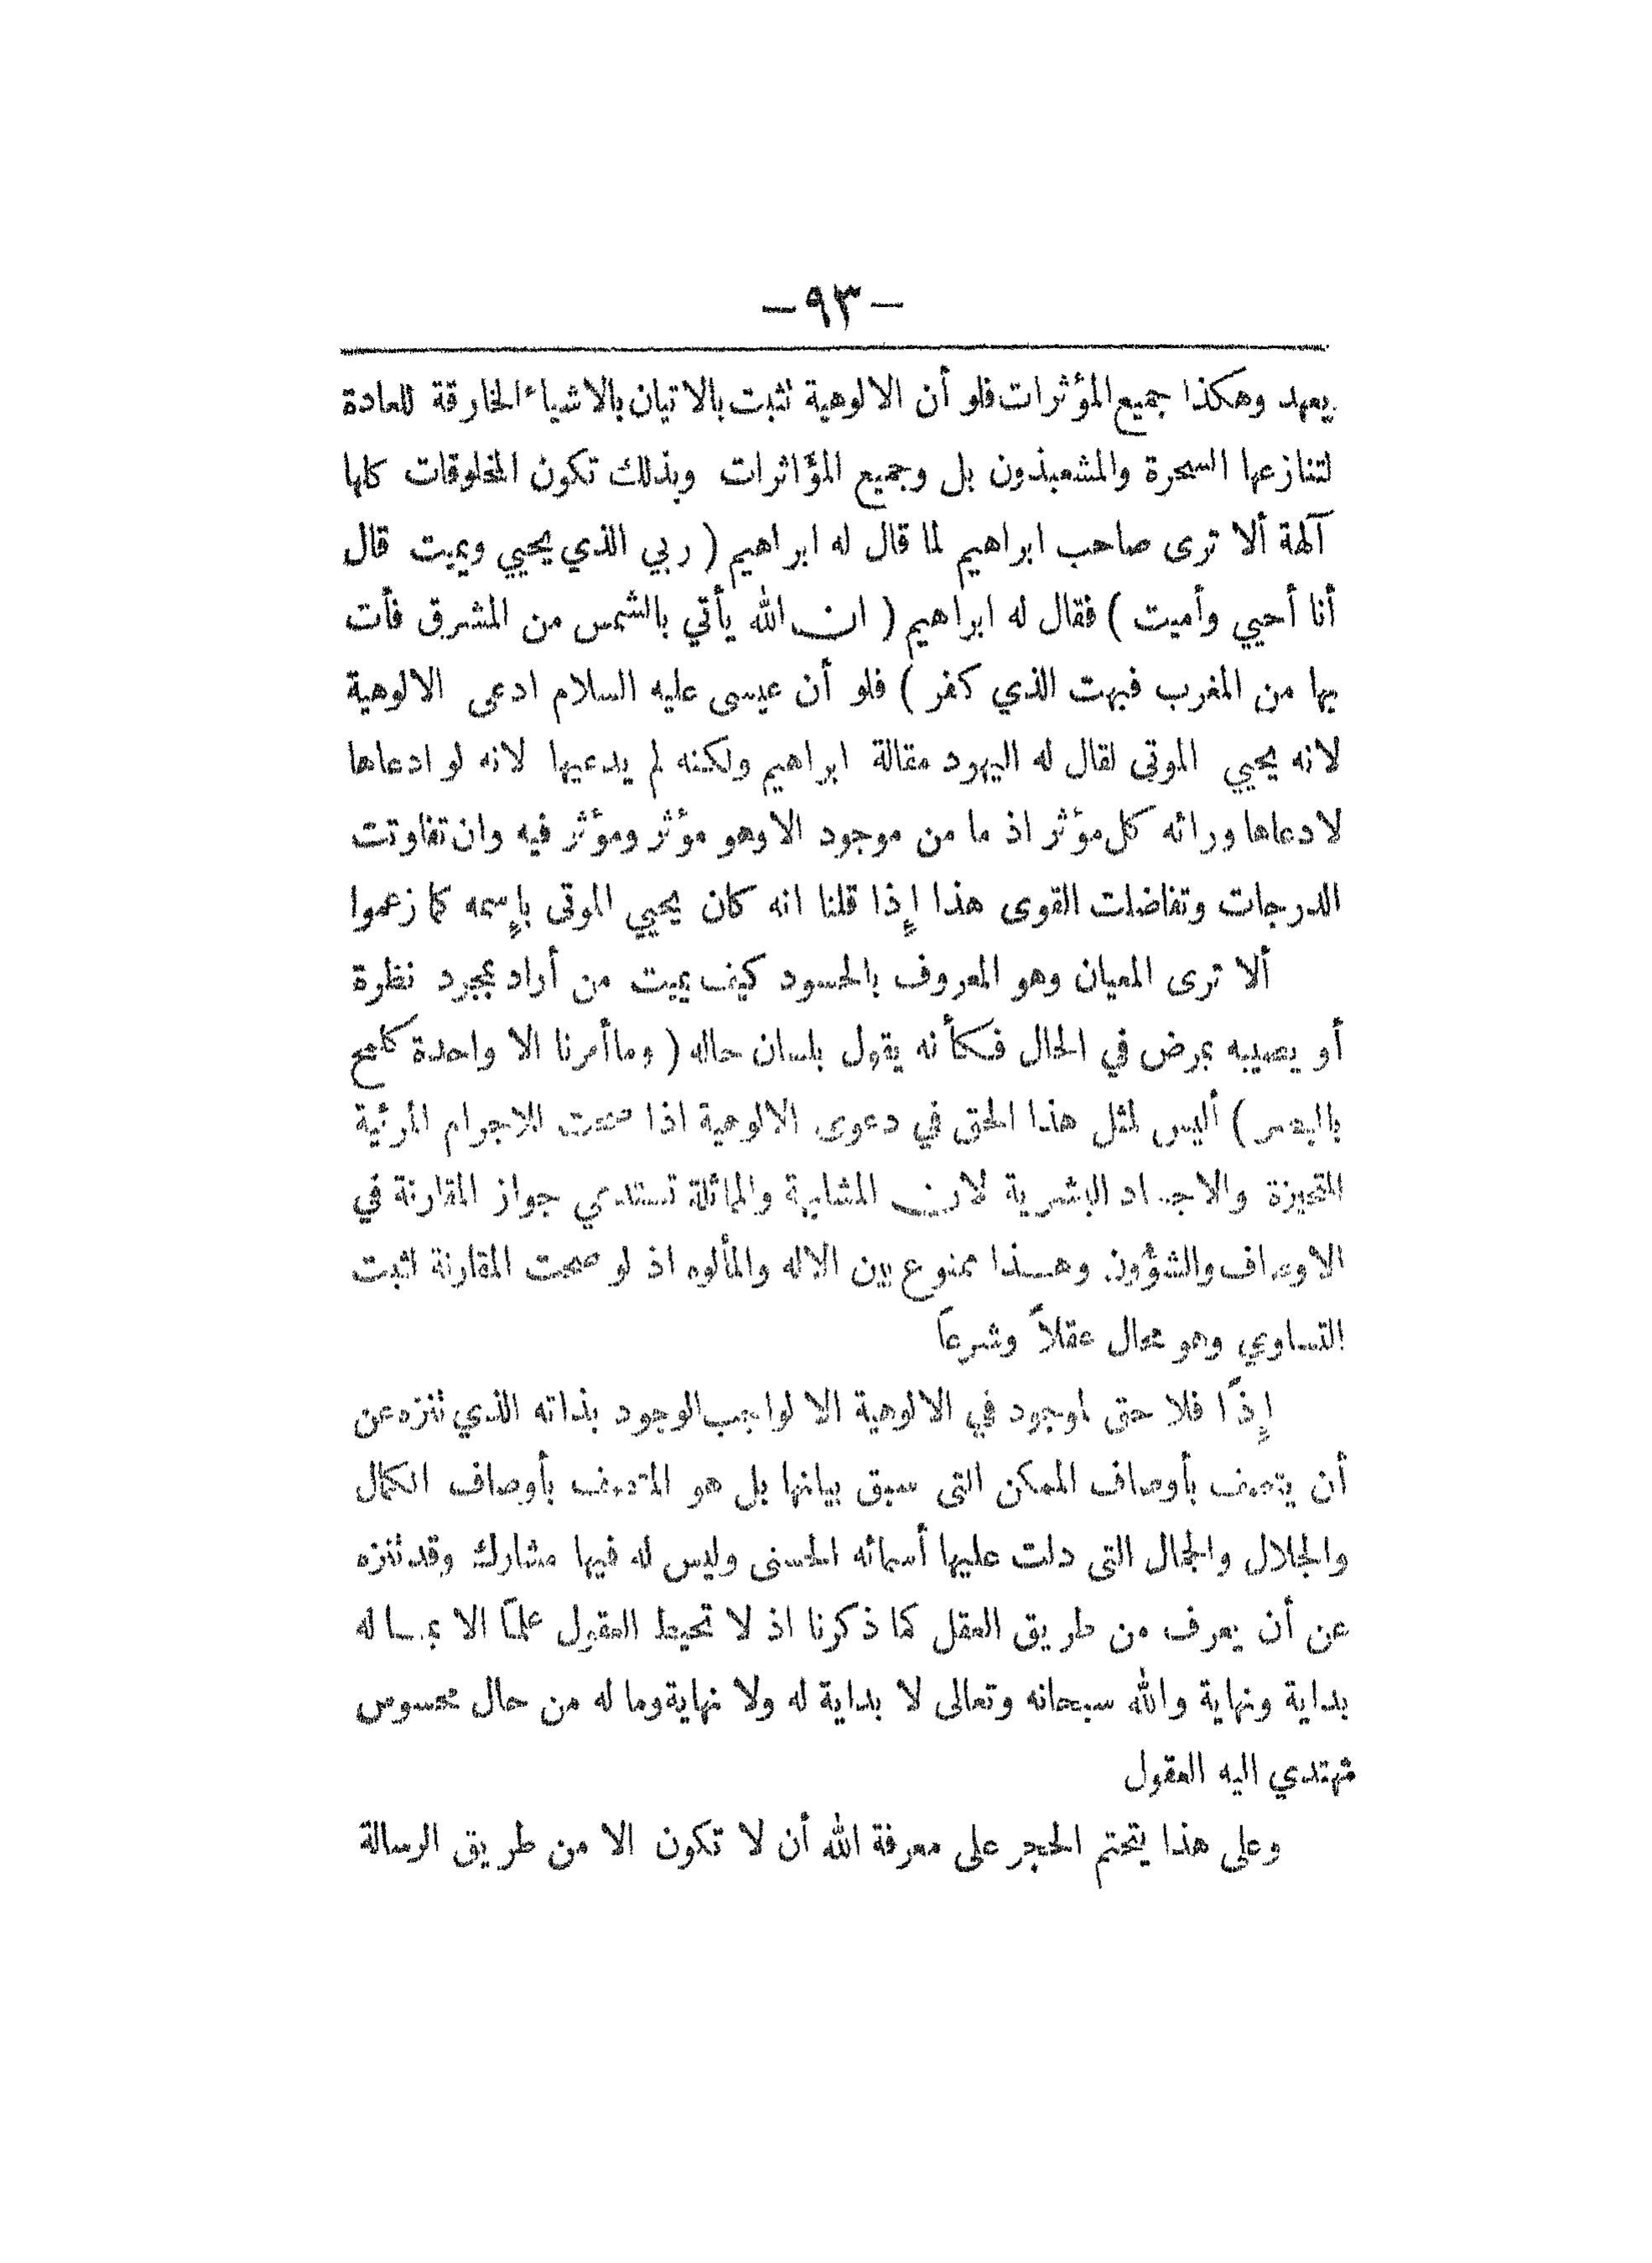 — ٩٣ —
يعهد وهكذا جميع المؤثرات فلو أن الالوهية نثبت بالاتيان بالاشياء الخارقة للعادة
لتنازعها السحرة والمشعبذون بل وجميع المؤاثرات وبذلك تكون المخلوقات كلها
آلهة ألا ترى صاحب ابراهيم لما قال له ابراهيم ( ربي الذي يحيي ويميت قال
أنا أحيي وأميت ) فقال له ابراهيم ( ان الله يأتي بالشمس من المشرق فأت
بها من المغرب فبهت الذي كفر ) فلو أن عيسى عليه السلام ادعى الالوهية
لانه يحيي الموتى لقال له اليهود مقالة ابراهيم ولكنه لم يدعيها لانه لو ادعاها
لادعاها ورائه كل مؤثر اذ ما من موجود الا وهو مؤثر ومؤثر فيه وان تفاوتت
الدرجات وتفاضلت القوى هذا إذا قلنا انه كان يحيي الموتى بإسمه كما زعموا
ألا ترى المعيان وهو المعروف بالحسود كيف يميت من أراد بمجرد نظرة
أو يصيبه بمرض في الحال فكأنه يقول بلسان حاله ( وما أمرنا الا واحدة كلمح
بالبصر ) أليس لمثل هذا الحق في دعوى الالوهية اذا صحت للاجرام المرئية
المتحيزة والاجساد البشرية لان المشابهة والماثلة تستدعي جواز المقارنة في
الاوصاف والشؤون وهذا ممنوع بين الاله والمألوه اذ لو صحت المقارنة لثبت
التساوي وهو محال عقلاً وشرعاً
إذًا فلا حق لموجود في الالوهية الا لواجب الوجود بذاته الذي نتزه عن
أن يتصف بأوصاف الممكن التى سبق بيانها بل هو المتصف بأوصاف الكمال
والجلال والجمال التى دلت عليها أسمائه الحسنى وليس له فيها مشارك وقد نتزه
عن أن يعرف من طريق العقل كما ذكرنا اذ لا تحيط العقول علمًا الا بما له
بداية ونهاية والله سبحانه وتعالى لا بداية له ولا نهاية وما له من حال محسوس
تهتدي اليه العقول
وعلى هذا يتحتم الحجر على معرفة الله أن لا تكون الا من طريق الرسالة